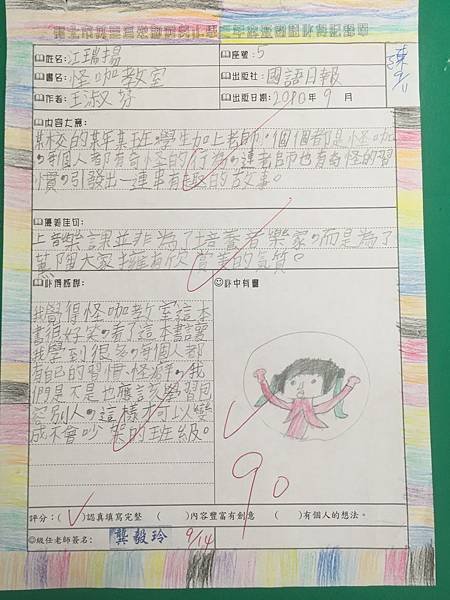 姓名:江瑞揚
座號:5
書名:怪咖教室
出版社:國語日報
作者:王淑芬
出版日期:2010年9月
陳 9/11
內容大意:
某校的某年某班,學生加上老師,個個都是怪咖
,每個人都有奇怪的行為,連老師也有奇怪的習
慣,引發出一連串有趣的故事。
優美佳句:
上音樂課並非為了培養音樂家,而是為了
薰陶大家擁有欣賞美的氣質。
心得感想:
我覺得怪咖教室這本
書很好笑,看了這本書讓
我學到很多,每個人都
有自己的習慣、怪癖,我
們是不是也應該學習包
容別人,這樣才可以變
成不會吵架的班級。
書中有畫
90
評分:( )認真填寫完整 ( )內容豐富有創意 ( )有個人的想法。
級任老師簽名:
龔毅玲
9/14